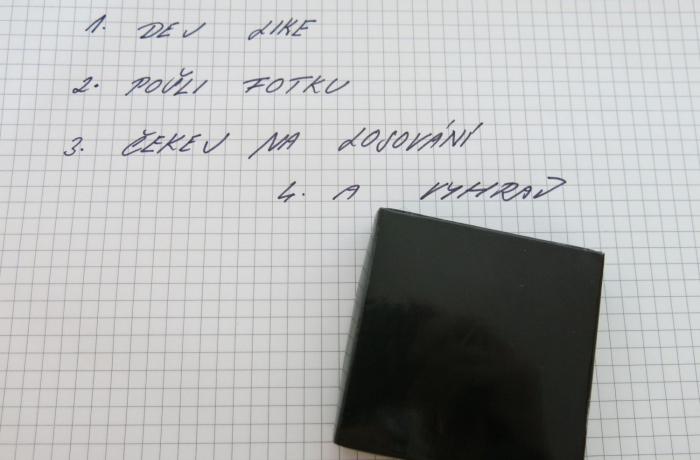 1. DEJ LIKE
2. POŠLI FOTKU
3. ČEKEJ NA LOSOVÁNÍ
4. A VYHRAJ